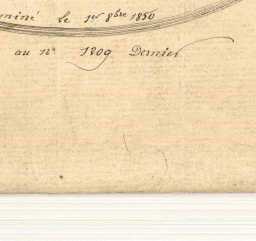 miné le 1er 8bre 1850
au no 1809 Dernier